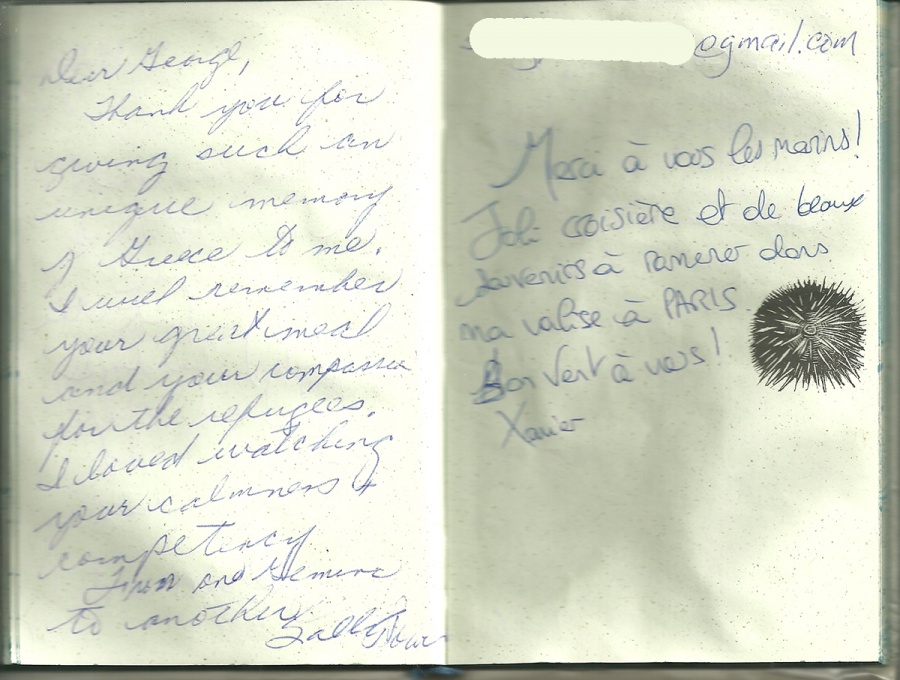 Dear George,
Thank you for
giving such an
unique memory
of Greece to me.
I will remember
your great meal
and your compassion
for the refugees.
I loved watching
your calmness &
competency
From one Gemini
to another
Sally
@gmail.com
Merci à vous les marins!
Joli croisière et de beaux
souvenirs à ramener dans
ma valise à PARIS
Bon Vent à vous!
Xavier